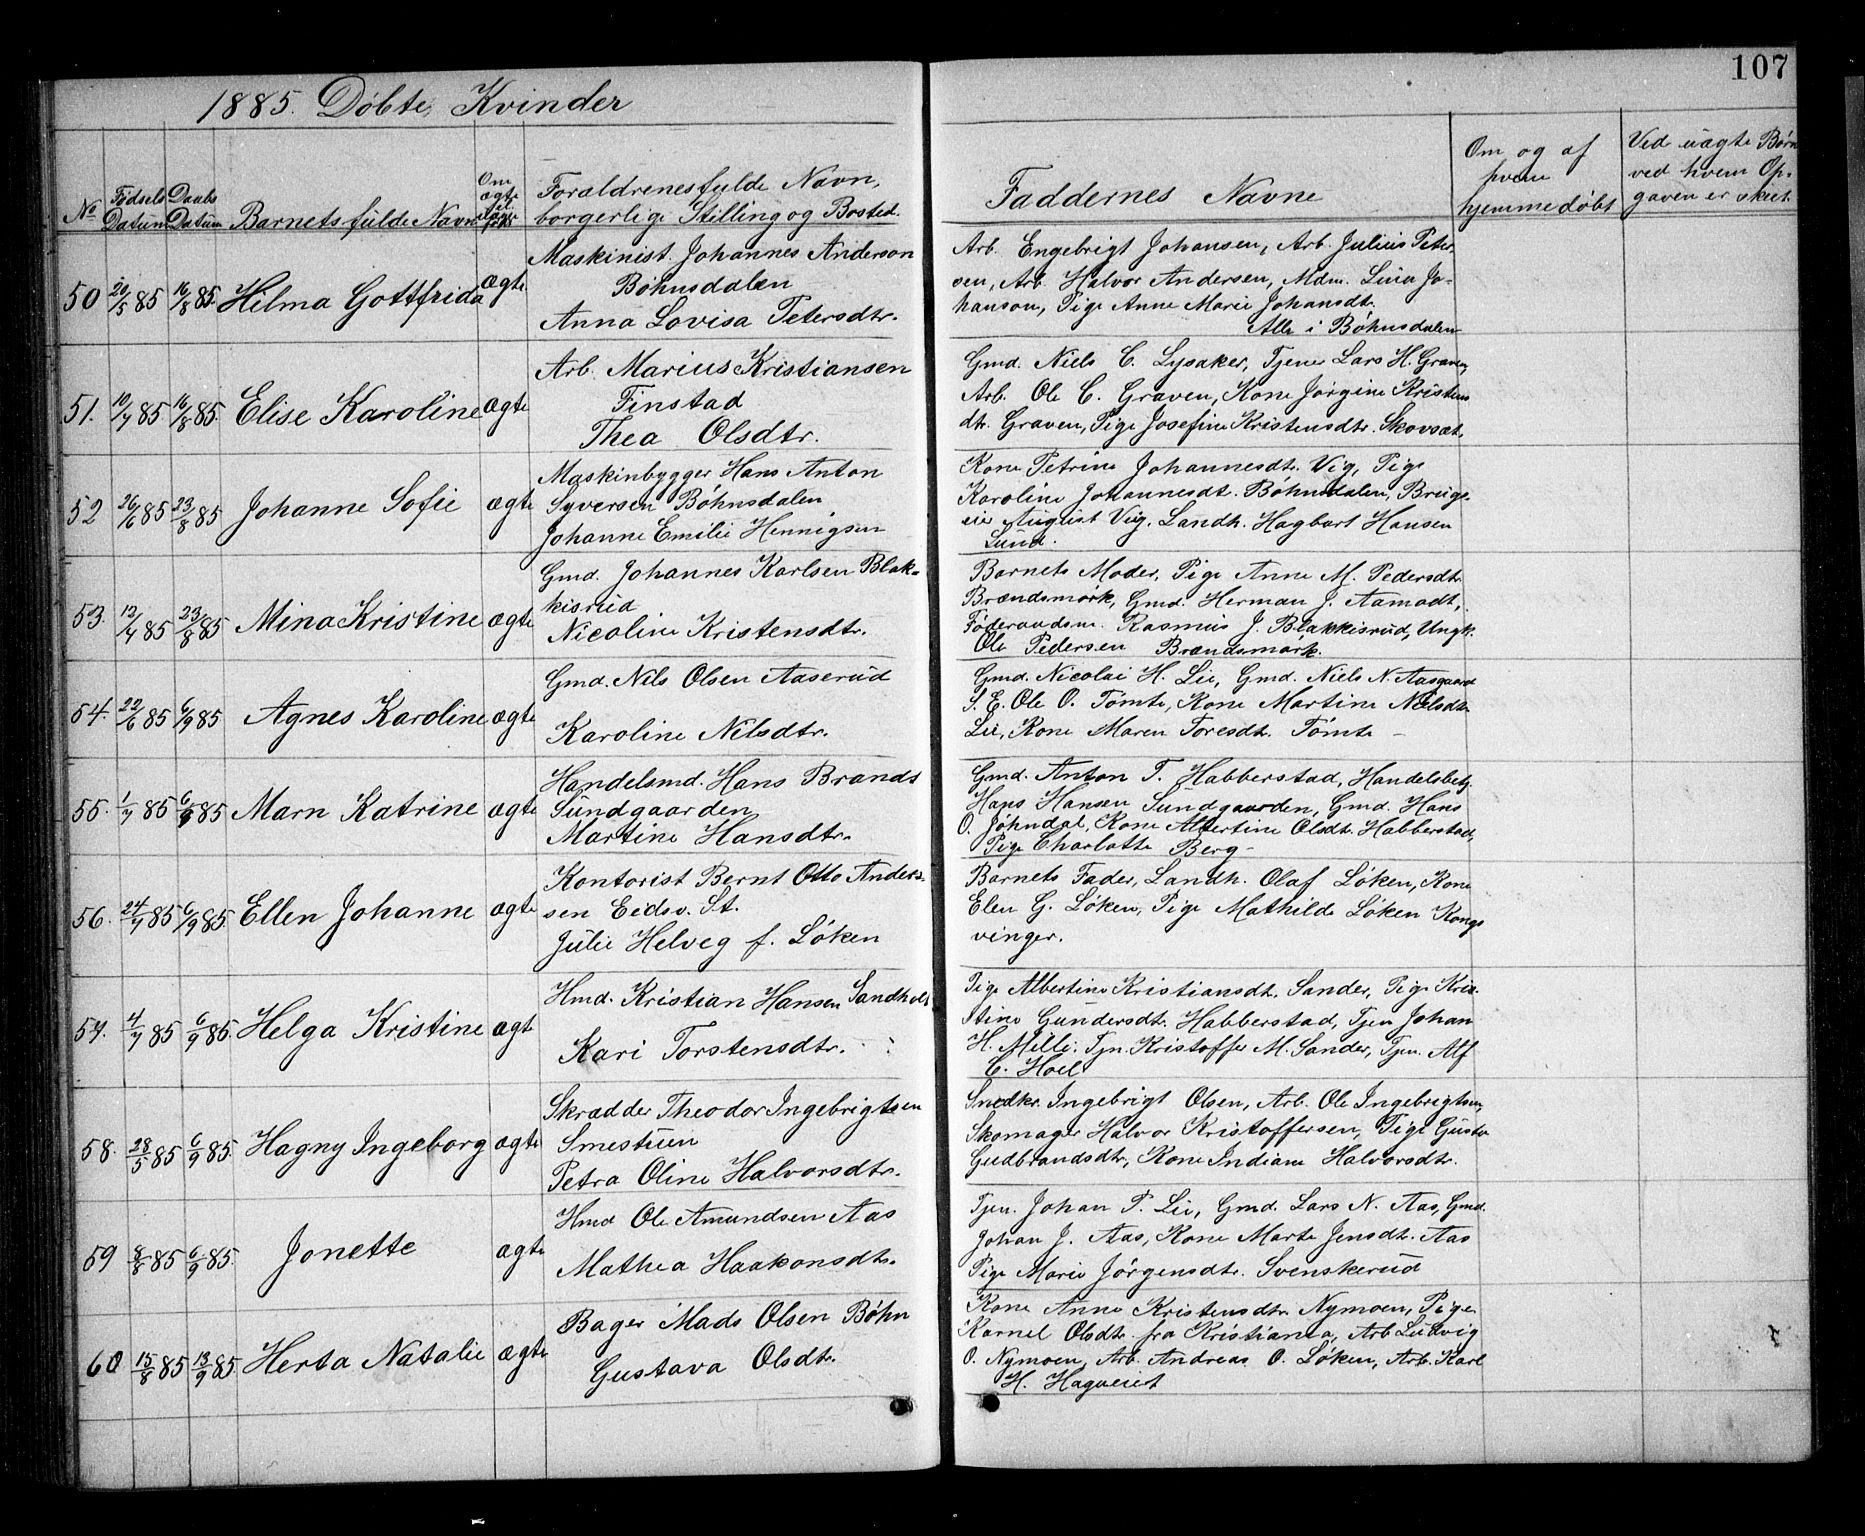 107
1885. Döbte, Kvinder
No
Fødsels Datum
Daabs Datum
Barnets fulde Navn
Om ægte el. uægte født
Forældrenes fulde Navn,
borgerlige Stilling og Bosted.
Faddernes Navne
Om og af
hvem
hjemmedøbt
Ved uægte Børn
ved hvem Op-
gaven er skeet.
50 20/5 85 16/8 85. Hilma Gottfrida ægte
Maskinist Johannes Anderson
Bøhnsdalen
Anna Lovisa Petersdtr.
Arb. Engebrigt Johansen, Arb. Julius Peter-
sen, Arb. Halvor Andersen, Mdm. Lina Jo-
hanson, Pige Anne Marie Johansdt.
Alle i Bøhnsdalen
51. 10/7 85 16/8 85. Elise Karoline ægte
Arb. Marius Kristiansen
Finstad
Thea Olsdtr.
Gmd. Niels C. Lysaker, Tjener Lars H. Graven,
Arb. Ole C. Graven, Kone Jørgine Kristens
dt. Graven, Pige Josefine Kristensdtr. Skovsæt.
52 26/6 85 23/8 85 Johanne Sofie ægte
Maskinbygger Hans Anton
Syversen Bøhnsdalen
Johanne Emilie Hennigsen
Kone Petrine Johannesdt. Vig, Pige
Karoline Johannesdt. Bøhnsdalen, Bruge-
eier August Vig. Landh. Hagbart Hansen
Lund.
53. 12/7 85 23/8 85 Mina Kristine ægte
Gmd. Johannes Karlsen Blak-
kisrud
Nicoline Kristensdtr.
Barnets Moder, Pige Anne M. Pedersdt.
Brændsmork, Gmd. Herman J. Aamodt,
Føderaadsm. Rasmus J. Blakkisrud, Ungk.
Ole Pedersen Brændsmork.
54. 22/6 85 6/9 85 Agnes Karoline ægte
Gmd. Nils Olsen Aaserud
Karoline Nilsdtr.
Gmd. Nicolai H. Lie, Gmd. Niels N. Aasgaard
S. E. Ole O. Tømte, Kone Martine Nilsdtr.
Lie, Kone Maren Toresdt. Tømte -
55. 1/7 85 6/9 85 Marn Katrine ægte
Handelsmd. Hans Brands
Sundgaarden
Martine Hansdtr.
Gmd. Anton T. Habberstad, Handelsbetj.
Hans Hansen Sundgaarden, Gmd. Hans
O. Jøhndal, Kone Albertine Olsdt. Habberstad,
Pige Charlotte Berg -
56. 24/7 85 6/9 85. Ellen Johanne ægte
Kontorist Bernt Otto Anders-
sen Eidsv. St.
Julie Helveg f. Løken
Barnets Fader, Landh. Olaf Løken, Kone
Elen G. Løken, Pige Mathilde Løken Kongs
vinger.
57. 4/7 85 6/9 85. Helga Kristine ægt
Hmd. Kristian Hansen Sandhol
Kari Torstensdtr.
Pige Albertine Kristiansdt. Sander, Pige Kris-
tine Gundersdt. Habberstad, Tjen Johan
H. Melle. Tjn. Kristoffer M. Sander, Tjen. Alf
C. Hoel
58. 28/5 85 6/9 85. Hagny Ingeborg ægte
Skrædder Theodor Ingebrigtsen
Smestuen
Petra Oline Halvorsdtr.
Snedkr. Ingebrigt Olsen, Arb. Ole Ingebrigtsen,
Skomager Halvor Kristoffersen, Pige Gusta
Gudbrandsdtr, Kone Indiane Halvorsdtr.
59 8/8 85 6/9 85. Jonette ægte
Hmd Ole Amundsen Aas
Mathea Haakonsdtr.
Tjen. Johan P. Lie, Gmd. Lars N. Aas, Gmd.
Johan J. Aas, Kone Marte Jensdt. Aas
Pige Marie Jørgensdtr. Svenskerud
60 15/8 85 13/9 85 Herta Natalie ægte
Bager Mads Olsen Bøhn
Gustava Olsdt.
Kone Anne Kristensdtr Nymoen, Pige
Karnel Olsdt. fra Kristiania, Arb Ludvig
O. Nymoen, Arb. Andreas O. Løken, Arb. Karl
H. Hagaeiet